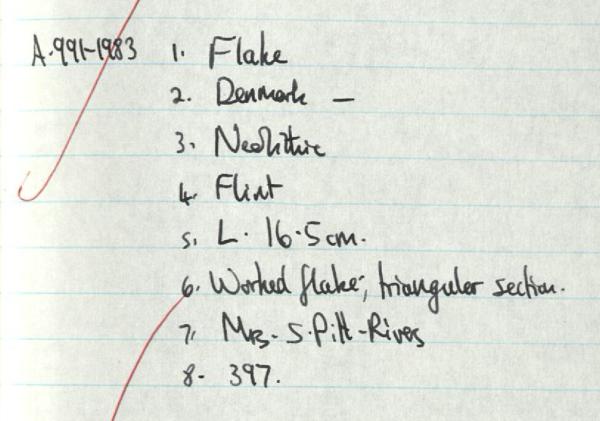 A.991-1983 1. Flake
2. Denmark —
3. Neolithic
4. Flint
5. L. 16.5cm.
6. Worked flake; triangular section.
7. Mrs. S. Pitt-Rivers
8. 397.